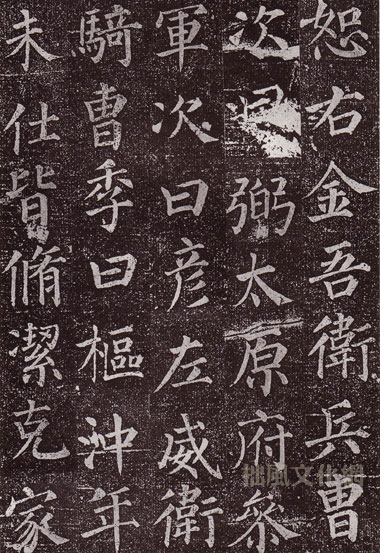 恕右金吾衛兵曹
次弼太原府叅
軍次曰彦左威衛
騎曹季曰樞沖年
未仕皆脩潔克家
拙風文化網